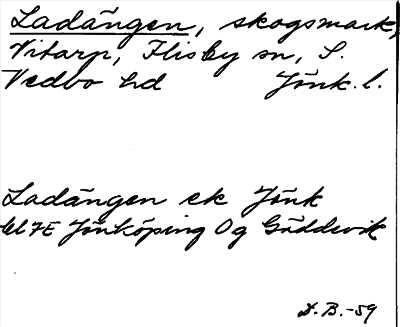 Ladängen, skogsmark,
Vitarp, Flisby sn, S.
Vedbo hd Jönk. l.
Ladängen ek Jönk
bl 7E Jönköping Og Gäddevik
D. B. -59